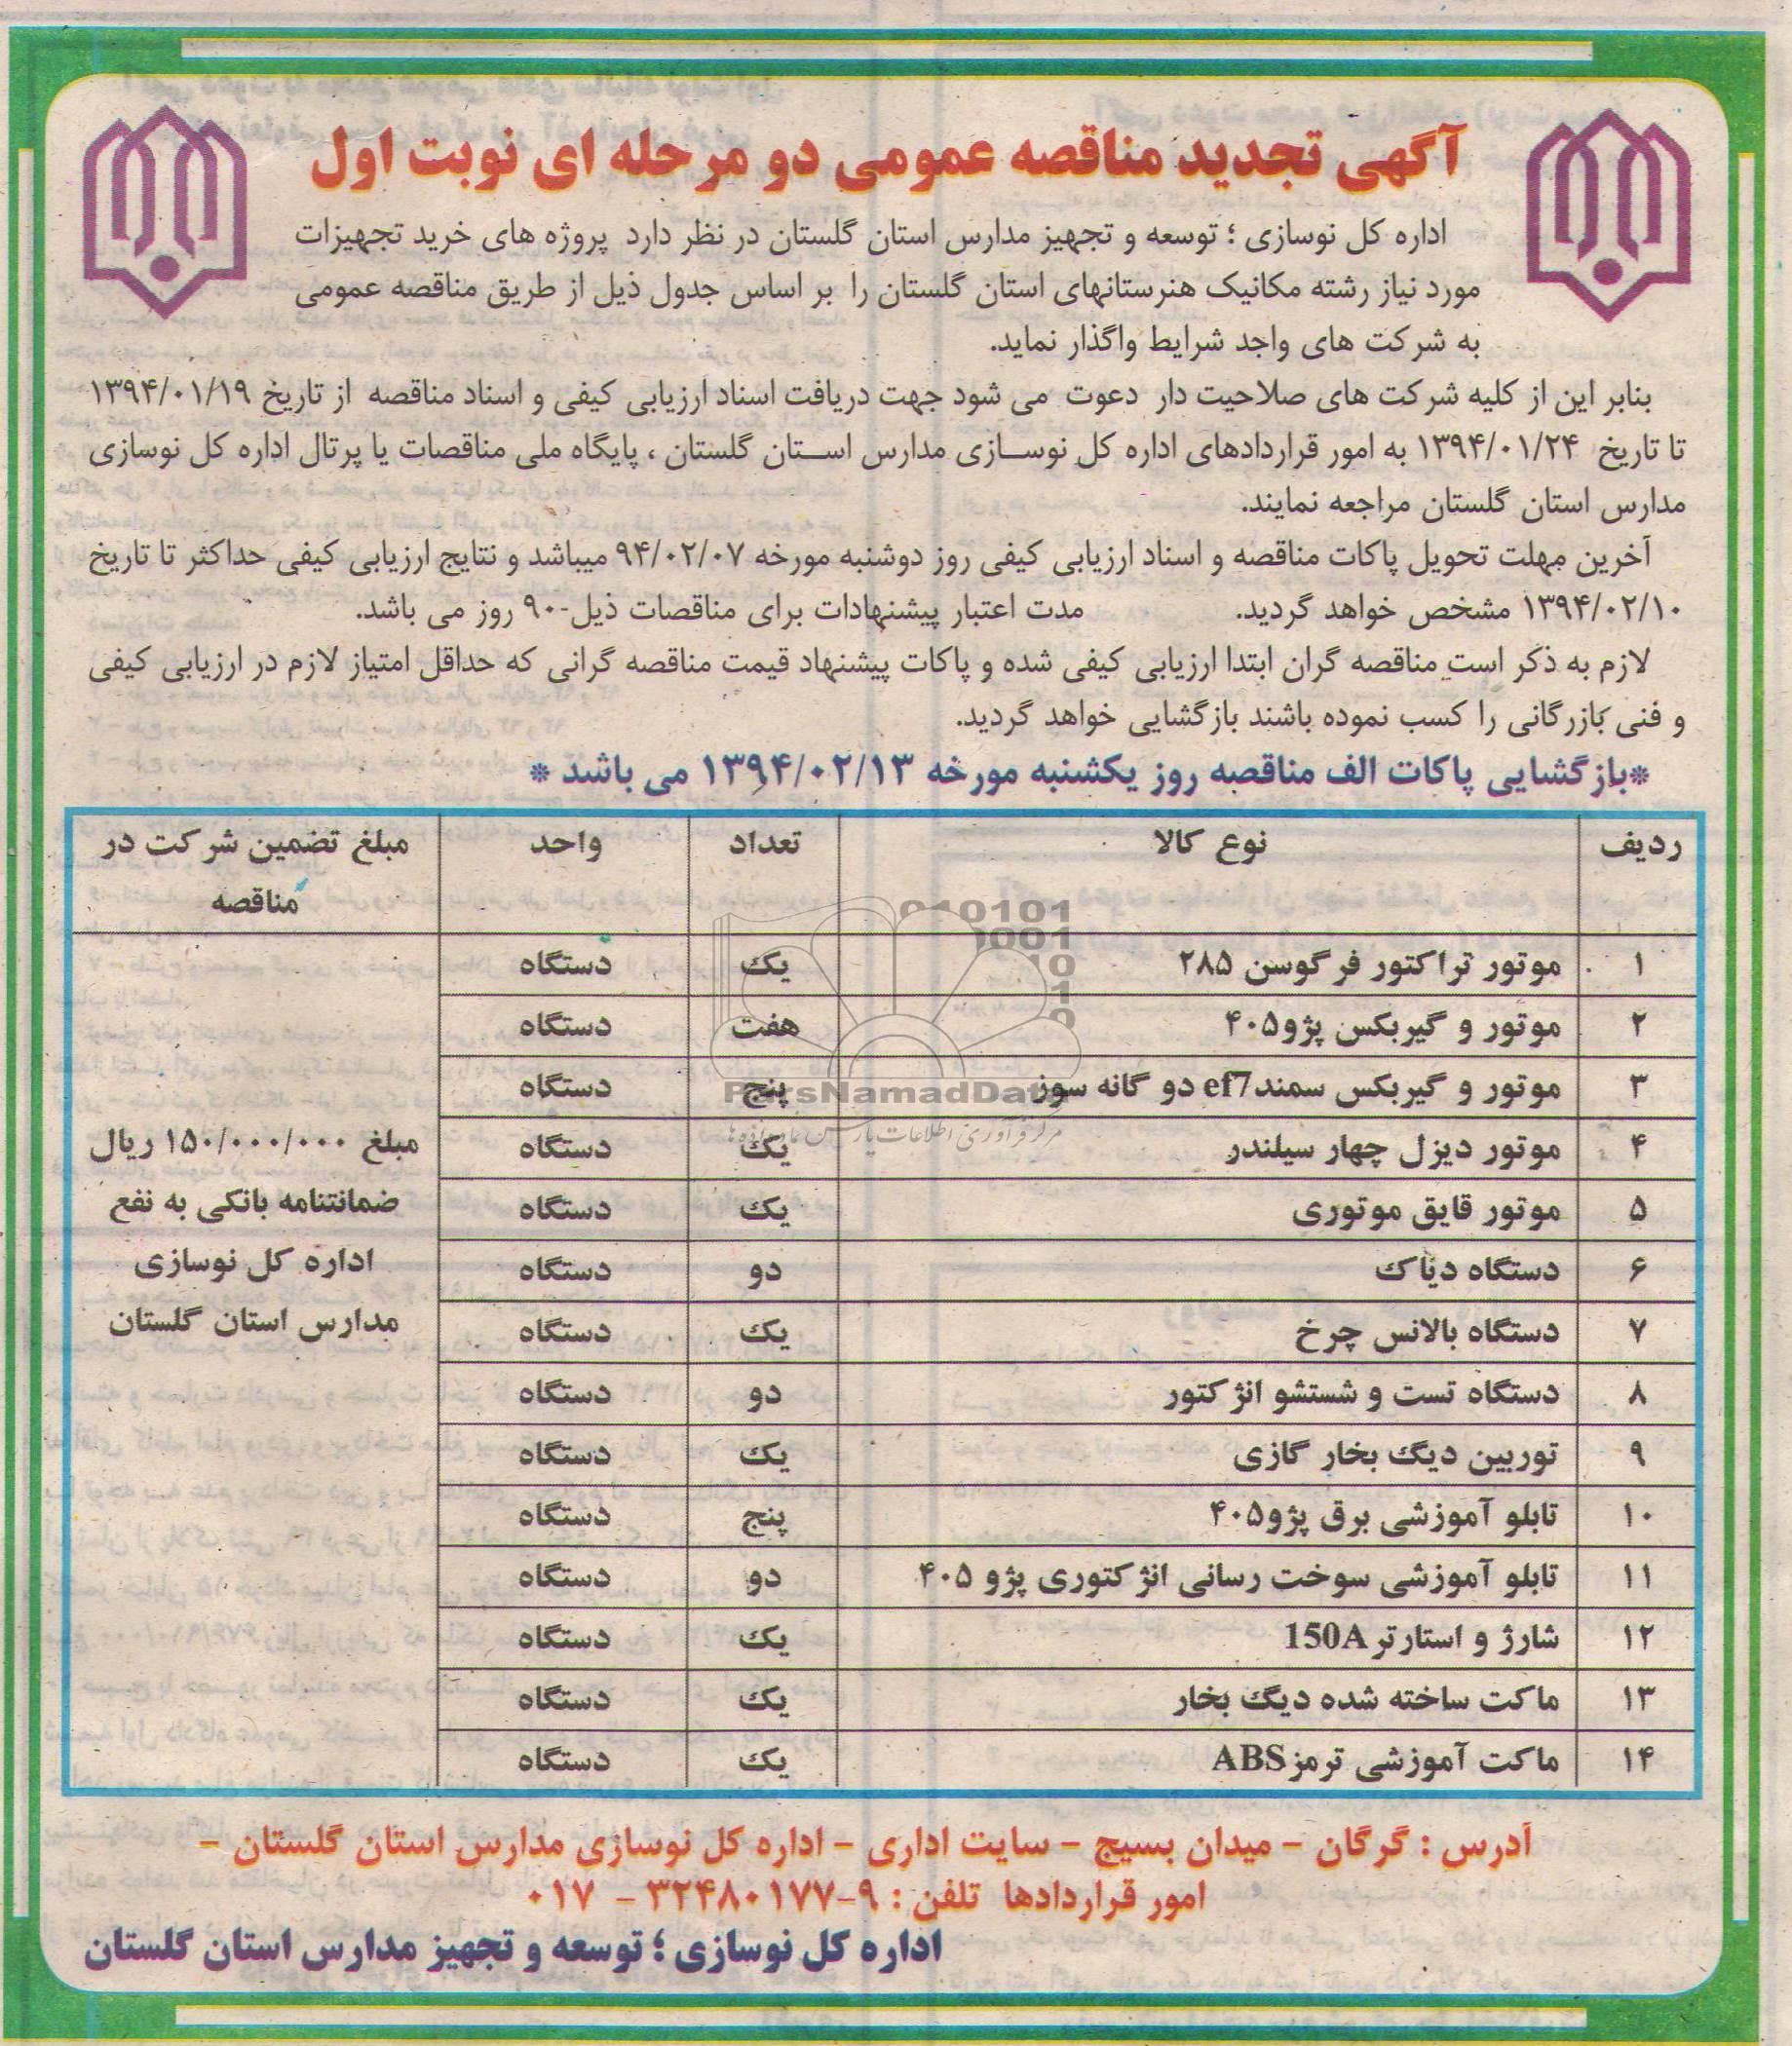 آگهی تجدید مناقصه عمومی دو مرحله ای نوبت اول
اداره کل نوسازی ؛ توسعه و تجهیز مدارس استان گلستان در نظر دارد پروژه های خرید تجهیزات
مورد نیاز رشته مکانیک هنرستانهای استان گلستان را بر اساس جدول ذیل از طریق مناقصه عمومی
به شرکت های واجد شرایط واگذار نماید.
بنابر این از کلیه شرکت های صلاحیت دار دعوت می شود جهت دریافت اسناد ارزیابی کیفی و اسناد مناقصه از تاریخ ۱۳۹۴/۰۱/۱۹
تا تاریخ ۱۳۹۴/۰۱/۲۴ به امور قراردادهای اداره کل نوسازی مدارس استان گلستان ، پایگاه ملی مناقصات یا پرتال اداره کل نوسازی
مدارس استان گلستان مراجعه نمایند.
آخرین مهلت تحویل پاکات مناقصه و اسناد ارزیابی کیفی روز دوشنبه مورخه ۹۴/۰۲/۰۷ میباشد و نتایج ارزیابی کیفی حداکثر تا تاریخ
۱۳۹۴/۰۲/۱۰ مشخص خواهد گردید. مدت اعتبار پیشنهادات برای مناقصات ذیل-۹۰ روز می باشد.
لازم به ذکر است مناقصه گران ابتدا ارزیابی کیفی شده و پاکات پیشنهاد قیمت مناقصه گرانی که حداقل امتیاز لازم در ارزیابی کیفی
و فنی بازرگانی را کسب نموده باشند بازگشایی خواهد گردید.
*بازگشایی پاکات الف مناقصه روز یکشنبه مورخه ۱۳۹۴/۰۲/۱۳ می باشد *
ردیف نوع کالا تعداد واحد مبلغ تضمین شرکت در
مناقصه
۱ موتور تراکتور فرگوسن ۲۸۵ یک دستگاه
۲ موتور و گیربکس پژو۴۰۵ هفت دستگاه
۳ موتور و گیربکس سمندef7 دو گانه سوز پنج دستگاه
۴ موتور دیزل چهار سیلندر یک دستگاه
۵ موتور قایق موتوری یک دستگاه
۶ دستگاه دیاک دو دستگاه
۷ دستگاه بالانس چرخ یک دستگاه
۸ دستگاه تست و شستشو انژکتور دو دستگاه
۹ توربین دیگ بخار گازی یک دستگاه
۱۰ تابلو آموزشی برق پژو۴۰۵ پنج دستگاه
۱۱ تابلو آموزشی سوخت رسانی انژکتوری پژو ۴۰۵ دو دستگاه
۱۲ شارژ و استارتر150A یک دستگاه
۱۳ ماکت ساخته شده دیگ بخار یک دستگاه
۱۴ ماکت آموزشی ترمزABS یک دستگاه
مبلغ ۱۵۰/۰۰۰/۰۰۰ ریال
ضمانتنامه بانکی به نفع
اداره کل نوسازی
مدارس استان گلستان
010101
0001
10
ParsNamadData
مرکز فرآوری اطلاعات پارس نماد داده ها
آدرس : گرگان - میدان بسیج - سایت اداری - اداره کل نوسازی مدارس استان گلستان -
امور قراردادها تلفن : ۹-۳۲۴۸۰۱۷۷ - ۰۱۷
اداره کل نوسازی ؛ توسعه و تجهیز مدارس استان گلستان